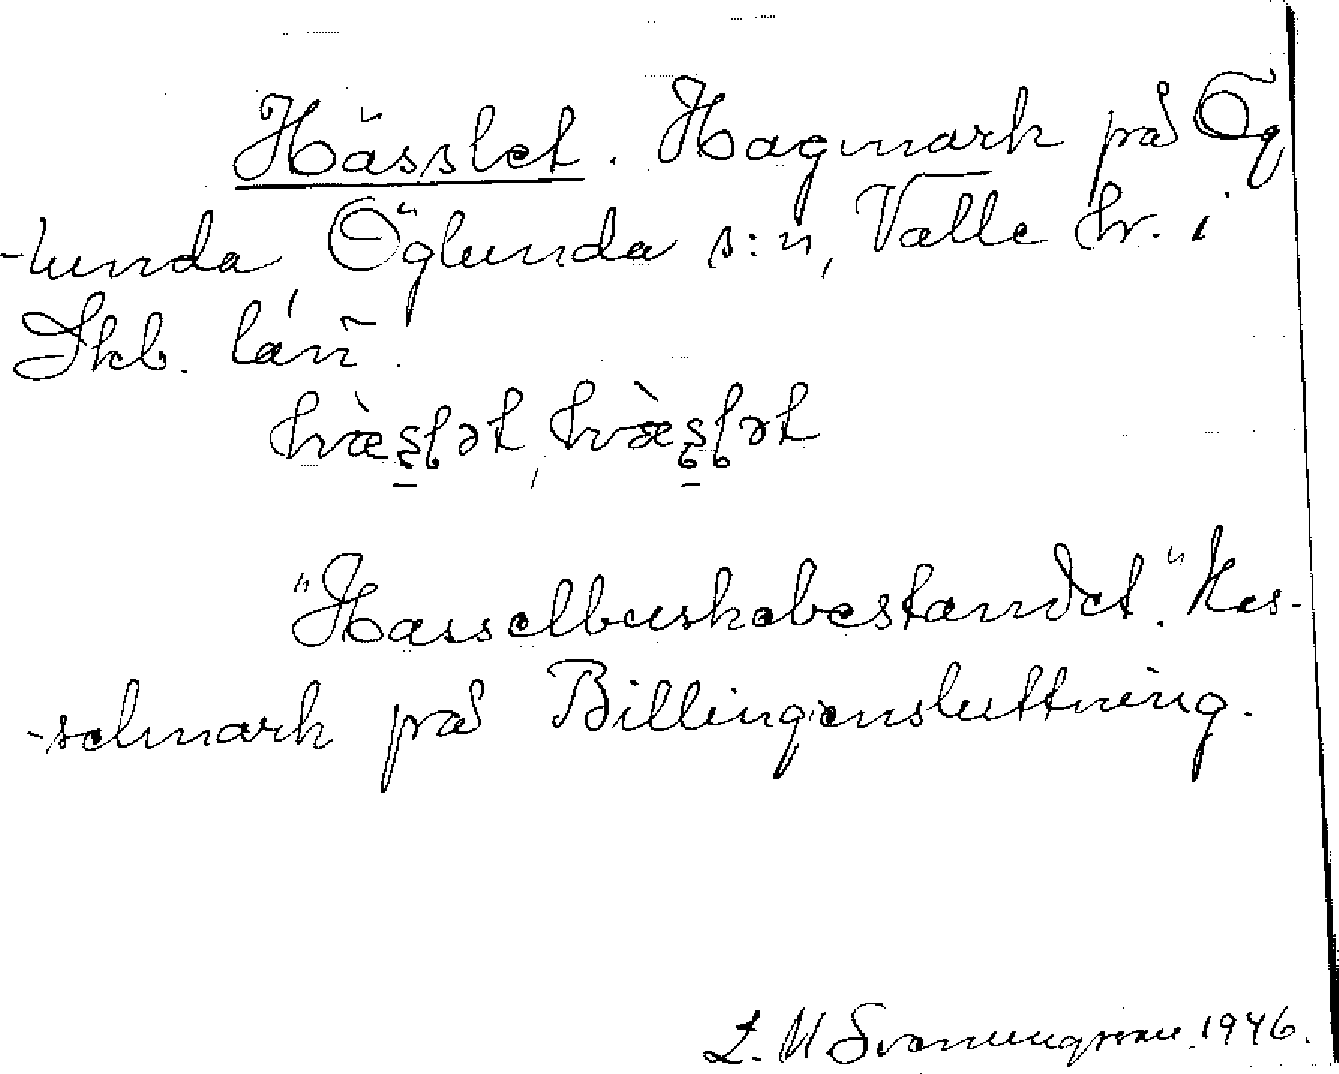 Hässlet. Hagmark på Ög
-lunda, Öglunda s:n, Valle hr. i
Skb. län.
hæ̀şļət, hæ̀şļət
"Hasselbuskebeståndet." Has-
-selmark på Billingensluttning.
L. M Svanungsson. 1946.